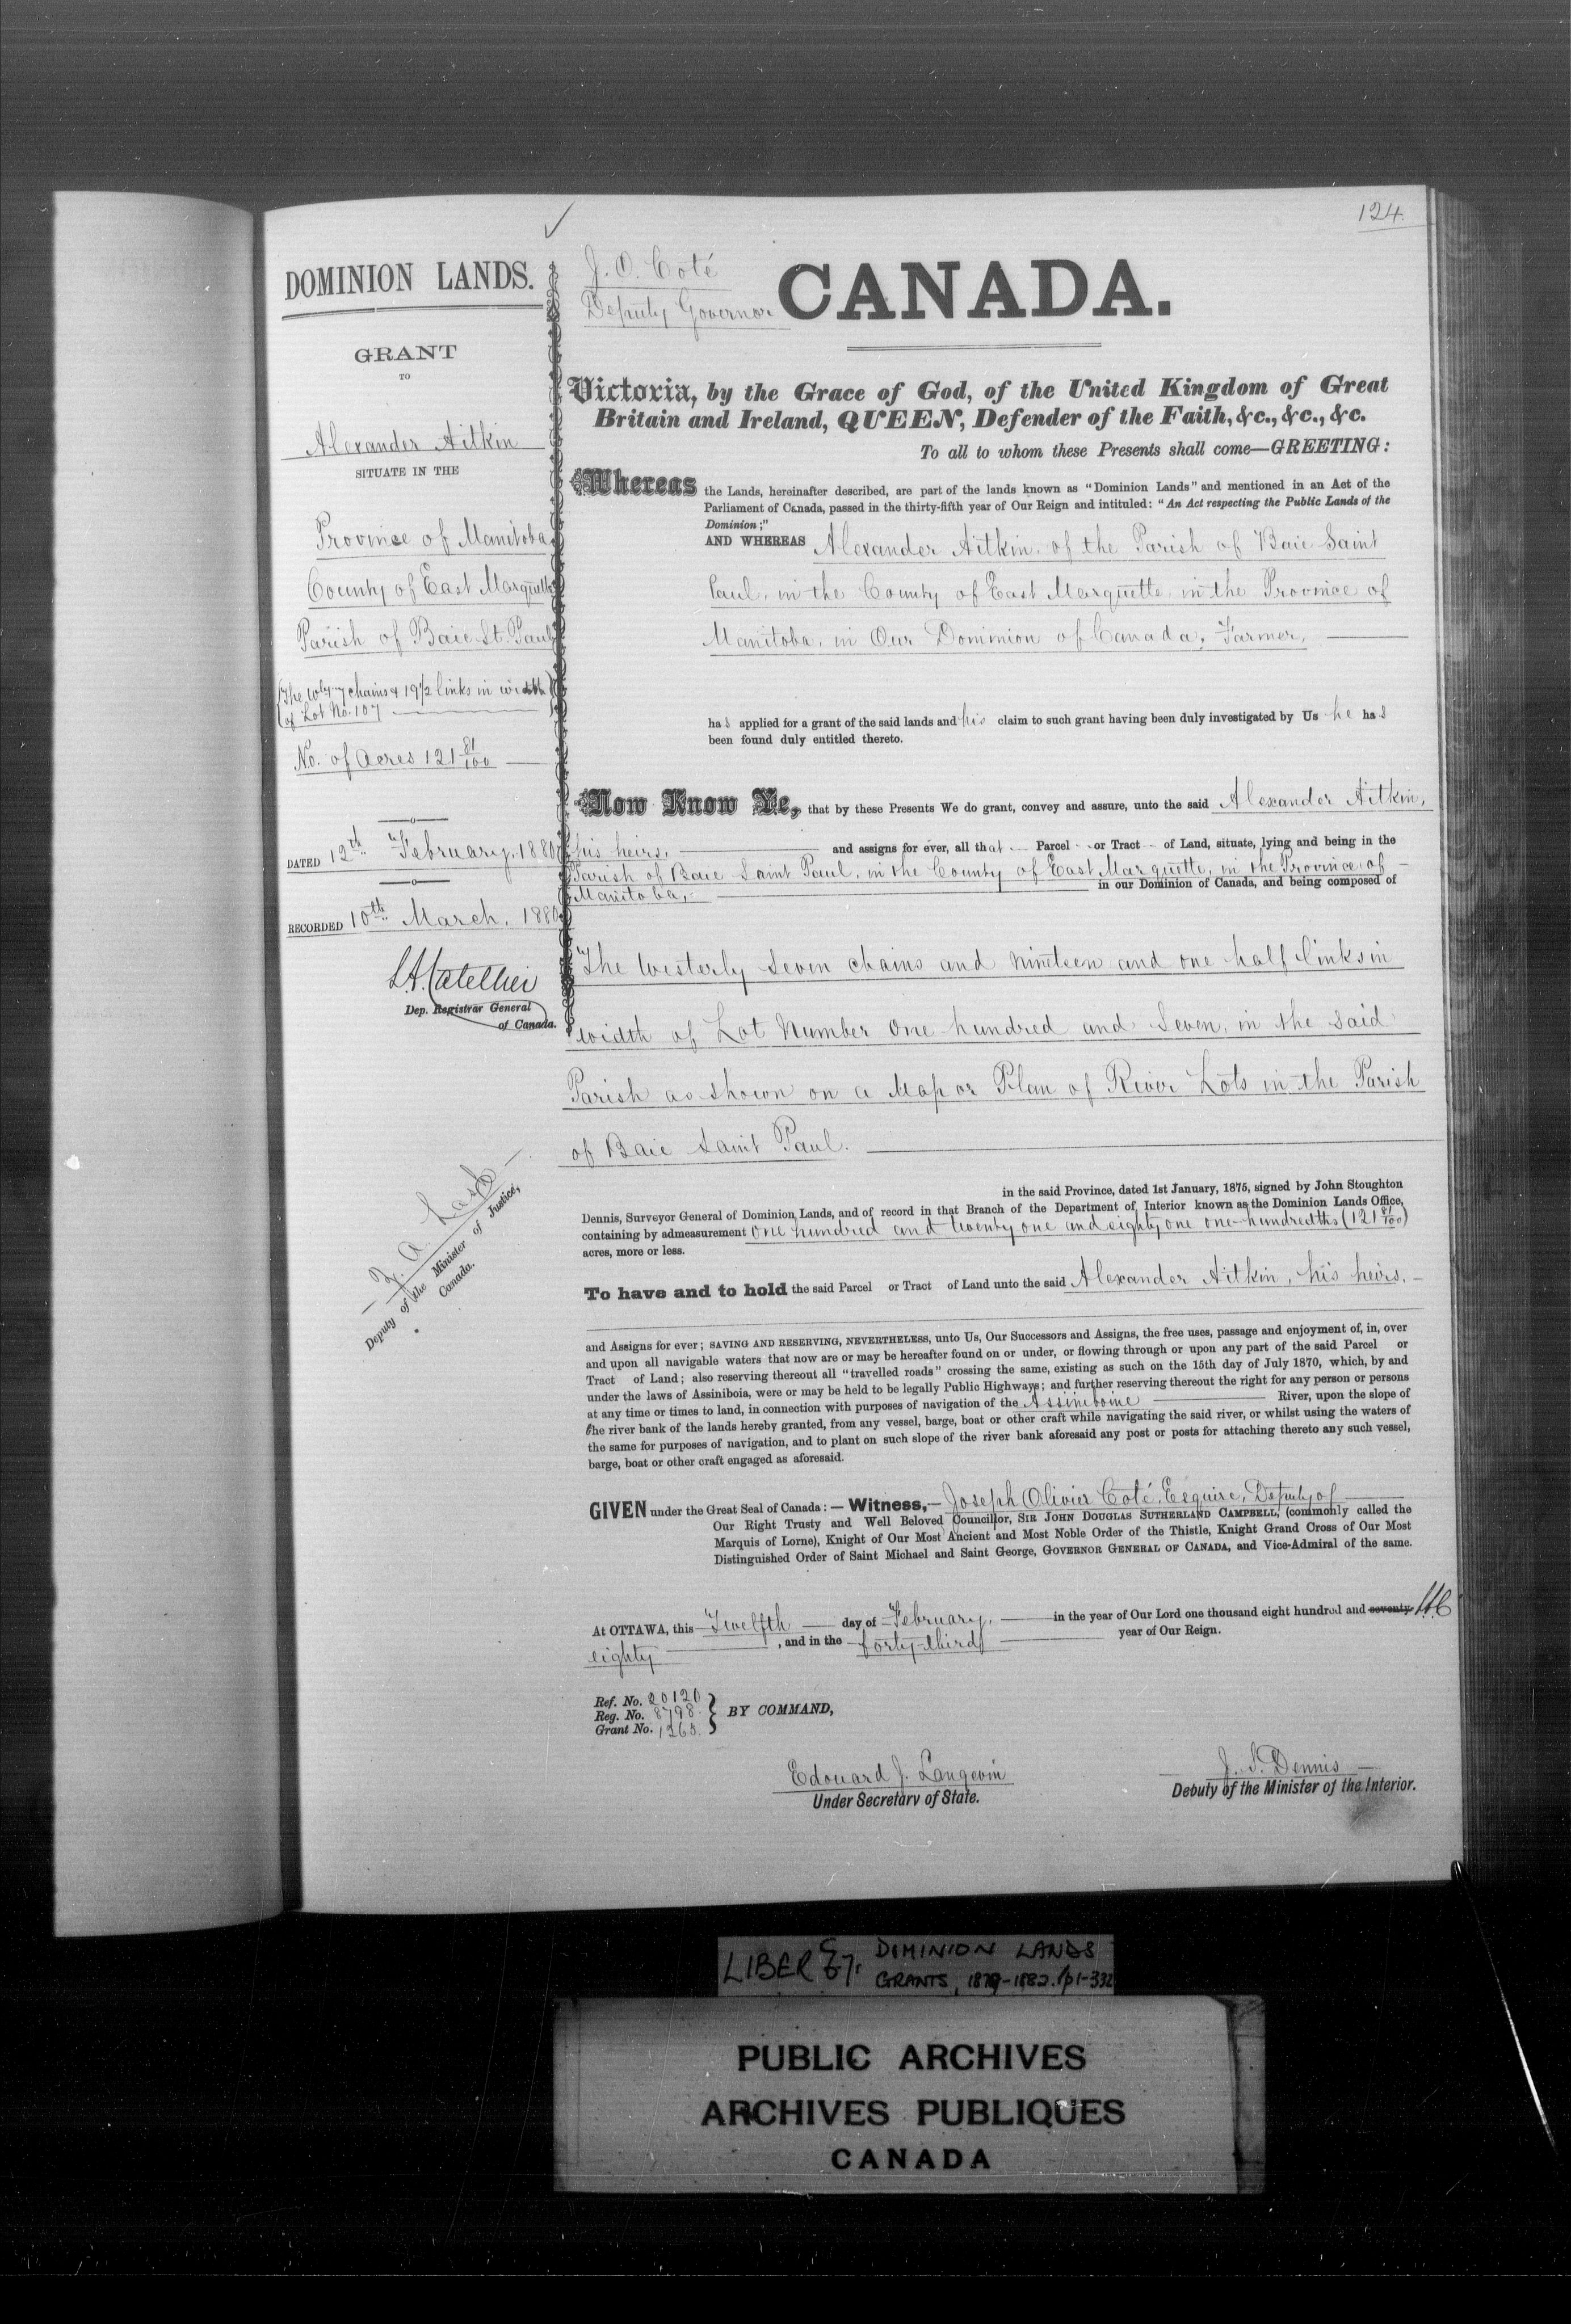 124.
DOMINION LANDS.
GRANT
TO
Alexander Aitkin
SITUATE IN THE
Province of Manitoba
County of East Marquette
Parish of Baie St. Paul
(The Wly 7 chains & 19½ links in width)
(of Lot No. 107
No. of Acres 121 81/100
DATED 12th February, 1880
RECORDED 10th March, 1880
L.A. Catellier
Dep. Registrar General
of Canada.
Z. A. Lash
Deputy of the Minister of Justice,
Canada.
J. O. Coté
Deputy Governor
CANADA.
Victoria, by the Grace of God, of the United Kingdom of Great
Britain and Ireland, QUEEN, Defender of the Faith, &c., &c., &c.
To all to whom these Presents shall come—GREETING:
Whereas the Lands, hereinafter described, are part of the lands known as "Dominion Lands" and mentioned in an Act of the
Parliament of Canada, passed in the thirty-fifth year of Our Reign and intituled: "An Act respecting the Public Lands of the
Dominion;"
AND WHEREAS Alexander Aitkin, of the Parish of Baie Saint
Paul, in the County of East Marquette, in the Province of
Manitoba, in Our Dominion of Canada, Farmer,
has applied for a grant of the said lands and his claim to such grant having been duly investigated by Us he has
been found duly entitled thereto.
Now Know Ye, that by these Presents We do grant, convey and assure, unto the said Alexander Aitkin,
his heirs, and assigns for ever, all that Parcel or Tract of Land, situate, lying and being in the
Parish of Baie Saint Paul, in the County of East Marquette, in the Province of
Manitoba, in our Dominion of Canada, and being composed of
The Westerly Seven chains and nineteen and one half links in
width of Lot Number One hundred and Seven, in the said
Parish as shown on a Map or Plan of River Lots in the Parish
of Baie Saint Paul.
in the said Province, dated 1st January, 1875, signed by John Stoughton
Dennis, Surveyor General of Dominion Lands, and of record in that Branch of the Department of Interior known as the Dominion Lands Office,
containing by admeasurement One hundred and twenty one and eighty one one-hundredths (121 81/100)
acres, more or less.
To have and to hold the said Parcel or Tract of Land unto the said Alexander Aitkin, his heirs,
and Assigns for ever; SAVING AND RESERVING, NEVERTHELESS, unto Us, Our Successors and Assigns, the free uses, passage and enjoyment of, in, over
and upon all navigable waters that now are or may be hereafter found on or under, or flowing through or upon any part of the said Parcel or
Tract of Land; also reserving thereout all "travelled roads" crossing the same, existing as such on the 15th day of July 1870, which, by and
under the laws of Assiniboia, were or may be held to be legally Public Highways; and further reserving thereout the right for any person or persons
at any time or times to land, in connection with purposes of navigation of the Assiniboine River, upon the slope of
the river bank of the lands hereby granted, from any vessel, barge, boat or other craft while navigating the said river, or whilst using the waters of
the same for purposes of navigation, and to plant on such slope of the river bank aforesaid any post or posts for attaching thereto any such vessel,
barge, boat or other craft engaged as aforesaid.
GIVEN under the Great Seal of Canada:— Witness,— Joseph Olivier Coté, Esquire, Deputy of
Our Right Trusty and Well Beloved Councillor, SIR JOHN DOUGLAS SUTHERLAND CAMPBELL, (commonly called the
Marquis of Lorne), Knight of Our Most Ancient and Most Noble Order of the Thistle, Knight Grand Cross of Our Most
Distinguished Order of Saint Michael and Saint George, GOVERNOR GENERAL OF CANADA, and Vice-Admiral of the same.
At OTTAWA, this Twelfth day of February, in the year of Our Lord one thousand eight hundred and seventy
eighty, and in the forty-third year of Our Reign.
Ref. No. 20120
Reg. No. 8798
Grant No. 1263.
BY COMMAND,
Edouard J. Langevin
Under Secretary of State.
J. S. Dennis
Deputy of the Minister of the Interior.
LIBER DOMINION LANDS
GRANTS, 1879-1882. p1-332
PUBLIC ARCHIVES
ARCHIVES PUBLIQUES
CANADA